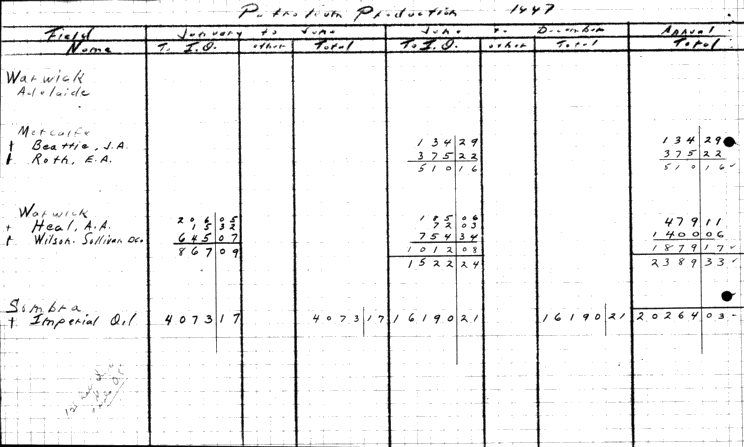 Petroleum Production 1947
Field Name January to June June to December Annual Total
To I.O. other Total To I.O. other Total
Warwick
Adelaide
Metcalfe
† Beattie, J.A. 134 29 134 29
† Roth, E.A. 375 22 375 22
510 16 510 16
Warwick 206 05 185 06
† Heal, A.A. 15 32 72 03 479 11
† Wilson-Sullivan D Co. 645 07 754 34 1400 06
867 09 1012 08 1879 17
1522 24 2389 33
Sombra
† Imperial Oil 4073 17 4073 17 16190 21 16190 21 20264 03